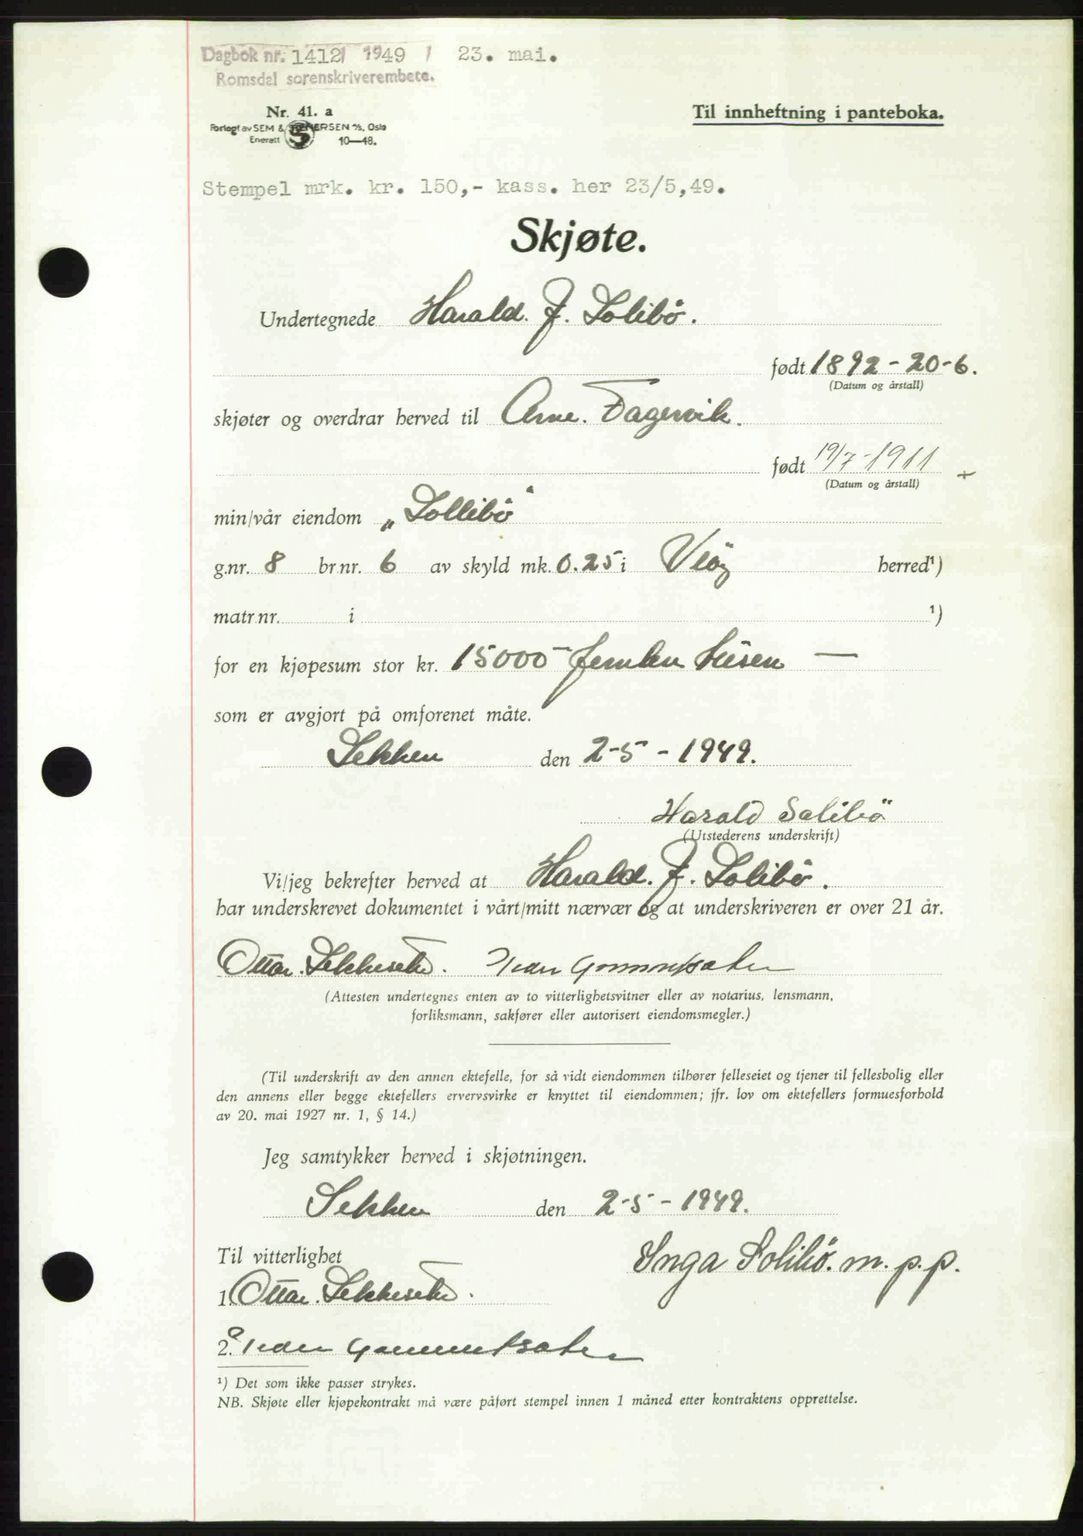 Dagbok nr. 1412 1949 / 23. mai.
Romsdal sorenskriverembete.
Nr. 41. a
Forlagt av SEM & STENERSEN A/S, Oslo
Enerett 10—48.
Til innheftning i panteboka.
Stempel mrk. kr. 150,- kass. her 23/5,49.
Skjøte.
Undertegnede Harald. J. Solibö.
født 1892 - 20-6.
(Datum og årstall)
skjøter og overdrar herved til Arne. Fagervik.
født 19/7-1911 +
(Datum og årstall)
min/vår eiendom „Sollibö"
g.nr. 8 br.nr. 6 av skyld mk. 0.25 i Veöy herred¹)
matr.nr. i ¹)
for en kjøpesum stor kr. 15000- femten tusen —
som er avgjort på omforenet måte.
Sekken den 2-5-1949.
Harald Solibö
(Utstederens underskrift)
Vi/jeg bekrefter herved at Harald. J. Solibö.
har underskrevet dokumentet i vårt/mitt nærvær og at underskriveren er over 21 år.
Ottar. Sekkesæter. Iver
(Attesten undertegnes enten av to vitterlighetsvitner eller av notarius, lensmann,
forliksmann, sakfører eller autorisert eiendomsmegler.)
(Til underskrift av den annen ektefelle, for så vidt eiendommen tilhører felleseiet og tjener til fellesbolig eller
den annens eller begge ektefellers ervervsvirke er knyttet til eiendommen; jfr. lov om ektefellers formuesforhold
av 20. mai 1927 nr. 1, § 14.)
Jeg samtykker herved i skjøtningen.
Sekken den 2-5-1949.
Til vitterlighet
Inga Solibö. m. p. p.
1. Ottar. Sekkesæter.
2. Iver
¹) Det som ikke passer strykes.
NB. Skjøte eller kjøpekontrakt må være påført stempel innen 1 måned etter kontraktens opprettelse.